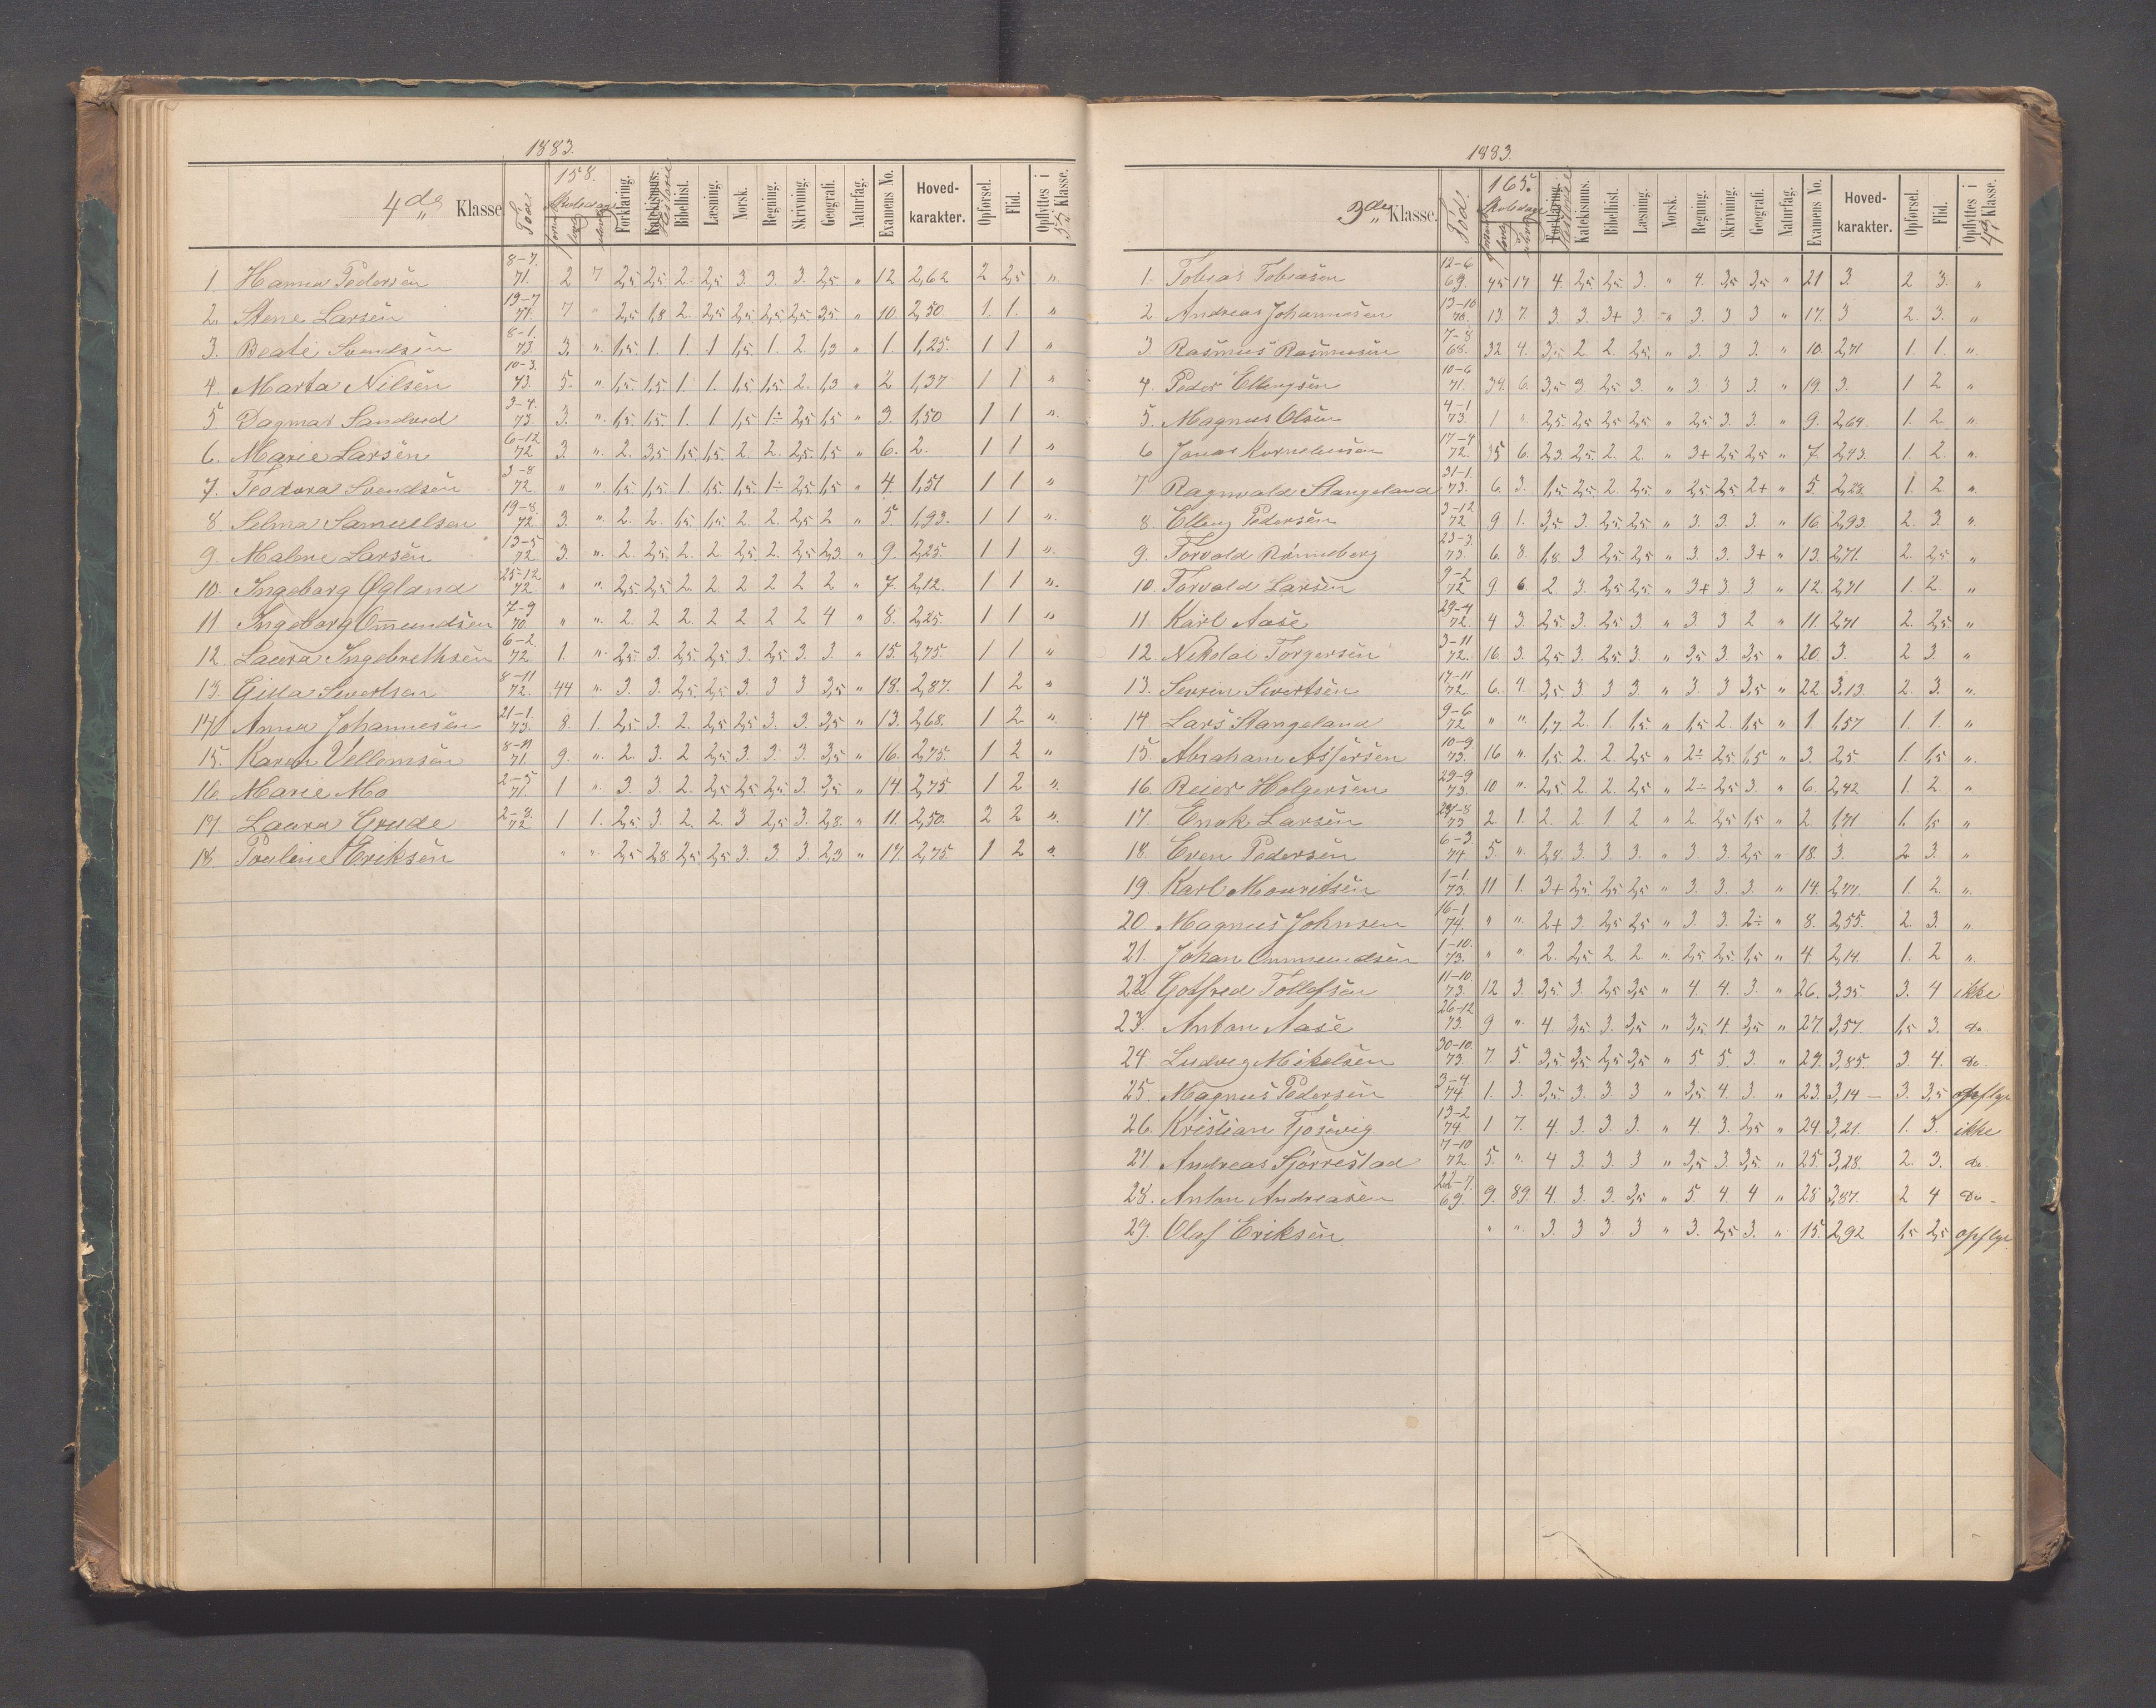 1883.
4de Klasse
Fød
158.
Skoledage
Forklaring.
Katekismus.
Bibelhist.
Læsning.
Norsk.
Regning.
Skrivning.
Geografi.
Naturfag.
Examens No.
Hoved-karakter.
Opførsel.
Flid.
Opflyttes i 5te Klasse.
1. Hanna Pedersen 8-7. 71. 2 7 2,5 2,5 2. 2,5 3. 3. 3. 2,5 " 12 2,62 2 2,5 "
2. Stene Larsen 19-7 71. 7 " 2,5 1,8 2. 2,5 2,5 2,5 2,5 3,5 " 10. 2,50. 1 1. "
3. Beate Svendsen 8-1. 73 3. " 1,5 1. 1. 1 1,5 1. 2. 1,3 " 1. 1,25. 1 1 "
4. Marta Nilsen 10-3. 73. 5. " 1,5 1,5 1. 1. 1,5 1,5 2. 1,3 " 2. 1,37 1 1 "
5. Dagmar Sandved 3-4. 73. 3. " 1,5 1,5 1. 1 1,5 1÷ 2,5 1,5 " 3. 1,50 1 1 "
6. Marie Larsen 6-12 72 3. " 2. 3,5 1,5 1,5 2. 2. 2,5 1,5 " 6. 2. 1 1 "
7. Teodora Svendsen 3-8 72 " " 1,5 1,5 1. 1,5 1,5 1÷ 2,5 1,5 " 4. 1,51 1 1 "
8. Selma Samuelsen 19-8. 72. 3. " 2. 2. 1,5 1,5 2. 2. 2,5 2 " 5. 1,93. 1 1 "
9. Malene Larsen 13-5 72. 3. " 2. 2,5 2. 2. 2,5 2. 2,5 2,3 " 9. 2,25. 1 1 "
10. Ingeborg Øgland 25-12 72. " " 2,5 2,5 2. 2 2 2 2 2 " 7. 2,12. 1 1 "
11 Ingeborg Om̅undsen 7-9 70. " " 2. 2 2. 2 2 2 2 4 " 8. 2,25. 1 1 "
12. Laura Ingebrethsen 6-2. 72. 1. " 2,5 3. 2,5 2,5 3. 2,5 3. 3. " 15. 2,75. 1 1 "
13. Gina Sivertsen 8-11 72. 44 " 3. 3. 2,5 2,5 3. 3 3 3,5 " 18. 2,87. 1 2 "
14. Anna Johannesen 21-1. 73. 8. 1. 2,5 3. 2. 2,5 2,5 3. 3. 3,5 " 13. 2,68. 1 2 "
15. Karen Vellemsen 8-11 71. 9. " 2. 3. 2 2,5 3. 3. 3. 3,5 " 16. 2,75. 1 2 "
16. Marie Mo 2-5 71. 1 " 3. 3. 2. 2,5 2,5 2,5 3. 3,5 " 14. 2,75. 1 2 "
17. Laura Grude 2-8. 72 1 1. 2,5 3. 2. 2. 3 2,5 3. 2,8. " 11. 2,50. 2 2 "
18. Pauline Eriksen " " 2,5 2,8 2,5 2,5 3. 3. 3. 2,3 " 17. 2,75. 1 2 "
1883.
3de Klasse.
Fød
165.
Skoledage
Forklaring.
Katekismus.
Bibelhist.
Læsning.
Norsk.
Regning.
Skrivning.
Geografi.
Naturfag.
Examens No.
Hoved-karakter.
Opførsel.
Flid.
Opflyttes i 4de Klasse.
1. Tobias Tobiasen 12-6 69. 45 17 4. 2,5 2,5 3. " 4. 3,5 3,5 " 21 3. 2 3. "
2 Andreas Johannesen 13-10 70. 13. 7. 3. 3. 3+ 3. " 3. 3 3 " 17. 3 2. 3. "
3. Rasmus Rasmusen 7-8 68. 32 4. 3,5 2. 2. 2,5 " 3. 3 3. " 10. 2,71 1. 1. "
4. Peder Ellengsen 10-6 71. 34. 6. 3,5 3 2,5 3. " 3. 3 3. " 19 3. 1 2 "
5. Magnus Olsen 4-1 73. 1 " 2,5 2,5 2,5 2,5 " 2,5 3. 3. " 9. 2,64. 1. 2. "
6 Jonas Kornelinsen 17-4 72. 35 6. 2,3 2,5 2. 2. " 3+ 2,5 2,5 " 7 2,43. 1. 2. "
7 Ragnvald Stangeland 31-1. 73. 6. 3. 1,5 2,5 2. 2,5 " 2,5 2,5 2+ " 5. 2,28. 1. 2 "
8. Elleng Pedersen 3-12 72 9 1. 3,5 3. 2,5 2,5 " 3. 3. 3. " 16 2,93. 2. 3. "
9. Torvald Rønneberg 23-3. 73. 6. 8. 1,8 3 2,5 2,5 " 3. 3. 3+ " 13. 2,71. 2. 2,5 "
10. Torvald Larsen 9-2 72 9 6. 2 3. 2,5 2,5 " 3+ 3. 3 " 12. 2,71 1. 2. "
11. Karl Aase 29-4 72 4 3. 2,5 3. 2,5 3. " 3 3 2 " 11. 2,71 2. 2,5 "
12. Nikolai Torgersen 3-11 72. 16. 3. 2,5 3. 2,5 3. " 3,5 3. 3,5 " 20. 3. 2 3. "
13. Severin Sivertsen 17-11 72 6. 4. 3,5 3 3 3. " 3. 3 3,5 " 22. 3,13. 2. 3. "
14. Lars Stangeland 9-6 72 " " 1,7 2. 1. 1,5 " 1,5 2. 1,5 " 1 1,57 1. 1. "
15. Abraham Asjersen 10-9. 73. 16 " 1,5 2. 2. 2,5 " 2÷ 2,5 1,5 " 3. 2,5 1. 1,5 "
16. Reier Holgersen 29-9 73. 10 " 2,5 2. 2. 2,5 " 2÷ 2,5 3. " 6. 2,42 1. 2. "
17. Enok Larsen 24-8 73 2 1. 2. 2. 1 2 " 2. 2,5 1,5 " 2. 1,71 1. 1,5 "
18. Even Pedersen 6-3. 74 5. " 2,8 3. 3. 3. " 3 3. 2,5 " 18. 3. 2 3. "
19. Karl Mouritsen 1-1. 73. 11 1. 3+ 2,5 2,5 2,5 " 3. 3. 3. " 14. 2,71. 1. 2. "
20. Magnus Johnsen 16-1 74. " " 2+ 3. 2,5 2,5 " 3. 3. 2÷ " 8. 2,55. 2. 3. "
21. Johan Ommundsen 1-10. 73. " " 2. 2,5 2. 2. " 2,5 2,5 1,5 " 4. 2,14. 1. 2 "
22. Gotfred Tollefsen 11-10. 73. 12 3. 3,5 3. 2,5 3,5 " 4. 4. 3. " 26. 3,35. 3. 4 ikke
23. Anton Aase 26-12 73. 9 " 4. 3,5 3. 3,5 " 3,5 4. 3,5 " 27. 3,57. 1,5 3. do
24. Ludvig Mikelsen 30-10. 73. 7. 5. 3,5 3,5 2,5 3,5 " 5 5. 3. " 29. 3,85. 3 4. do
25. Magnus Pedersen 3-4. 74 1. 3. 3,5 3. 3. 3 " 3,5 4. 3. " 23. 3,14 — 3. 3,5 opflyt
26. Kristian Tjosevig 13-2 74 1 7. 4. 3. 3. 3. " 4. 3. 2,5 " 24. 3,21. 1. 3. ikke
27. Andreas Sjørrestad 7-10 72. 5. " 4 3. 3. 3 " 3,5 3. 3,5 " 25. 3,28. 2. 3. do
28. Anton Andreasen 22-7. 69. 9. 89. 4. 3. 3. 3,5 " 5. 4. 4 " 28 3,87. 2 4 do -
29. Olaf Eriksen " " 3. 3 3. 3 " 3. 2,5 3. " 15. 2,92 1,5 2,5 opflyt